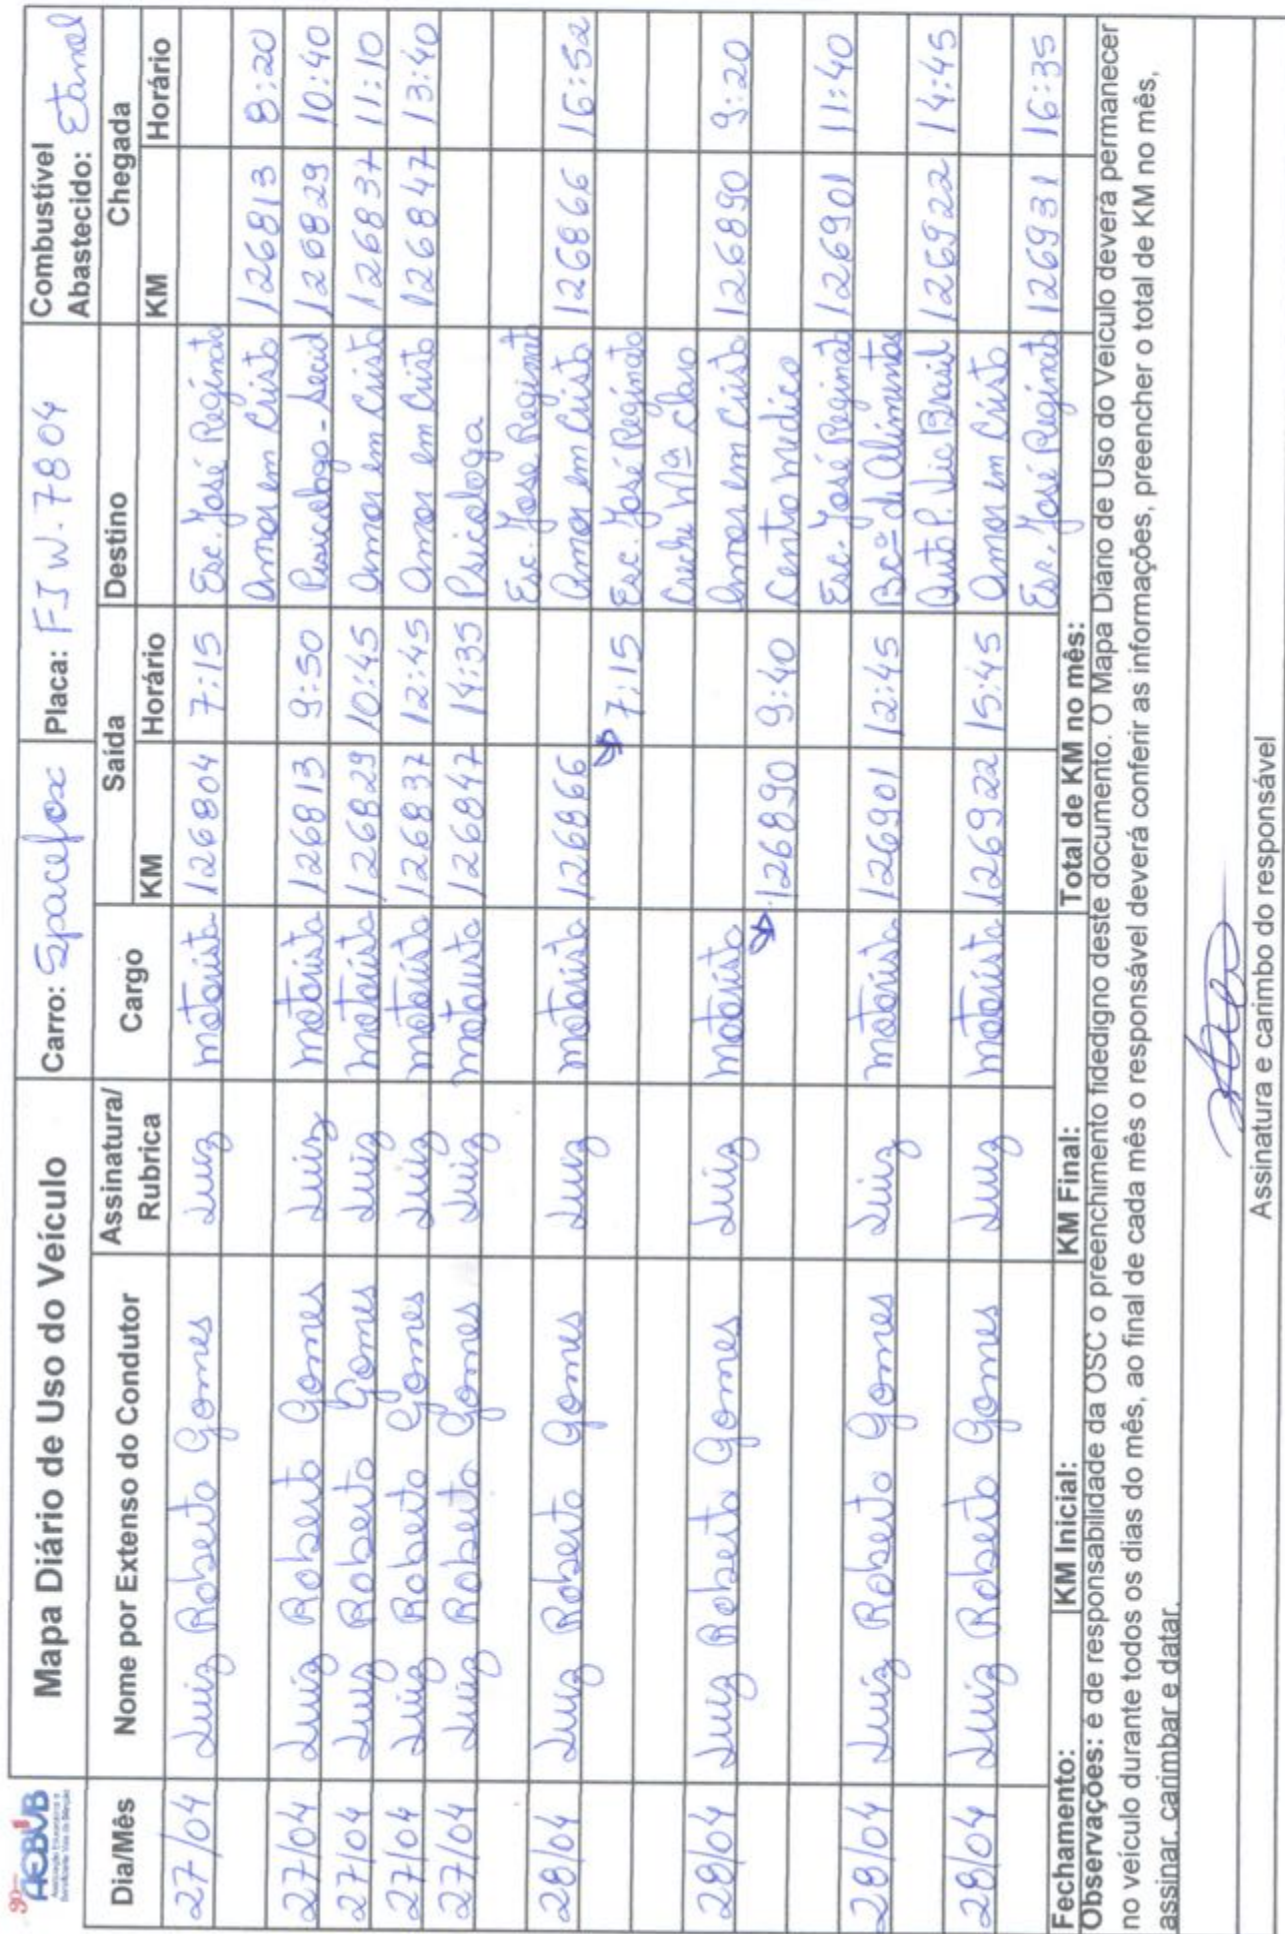 90 AEBVB
Associação Educacional e
Beneficente Vale da Benção
Mapa Diário de Uso do Veículo Carro: Spacefox Placa: FJW.7804 Combustível Abastecido: Etanol
Dia/Mês Nome por Extenso do Condutor Assinatura/Rubrica Cargo Saída Destino Chegada
KM Horário KM Horário
27/04 Luiz Roberto Gomes Luiz motorista 126804 7:15 Esc. José Reginato
Amor em Cristo 126813 8:20
27/04 Luiz Roberto Gomes Luiz motorista 126813 9:50 Psicologo - Secid 126829 10:40
27/04 Luiz Roberto Gomes Luiz motorista 126829 10:45 Amor em Cristo 126837 11:10
27/04 Luiz Roberto Gomes Luiz motorista 126837 12:45 Amor em Cristo 126847 13:40
27/04 Luiz Roberto Gomes Luiz motorista 126847 14:35 Psicologa
Esc. Jose Reginato
28/04 Luiz Roberto Gomes Luiz motorista 126866 Amor em Cristo 126866 16:52
7:15 Esc. José Reginato
Creche Mª Claro
28/04 Luiz Roberto Gomes Luiz motorista Amor em Cristo 126890 9:20
126890 9:40 Centro Medico
Esc. José Reginato 126901 11:40
28/04 Luiz Roberto Gomes Luiz motorista 126901 12:45 Bcº de Alimentos
Auto P. Vic Brasil 126922 14:45
28/04 Luiz Roberto Gomes Luiz motorista 126922 15:45 Amor em Cristo
Esc. José Reginato 126931 16:35
Fechamento: KM Inicial: KM Final: Total de KM no mês:
Observações: é de responsabilidade da OSC o preenchimento fidedigno deste documento. O Mapa Diário de Uso do Veículo deverá permanecer
no veículo durante todos os dias do mês, ao final de cada mês o responsável deverá conferir as informações, preencher o total de KM no mês,
assinar, carimbar e datar.
Assinatura e carimbo do responsável